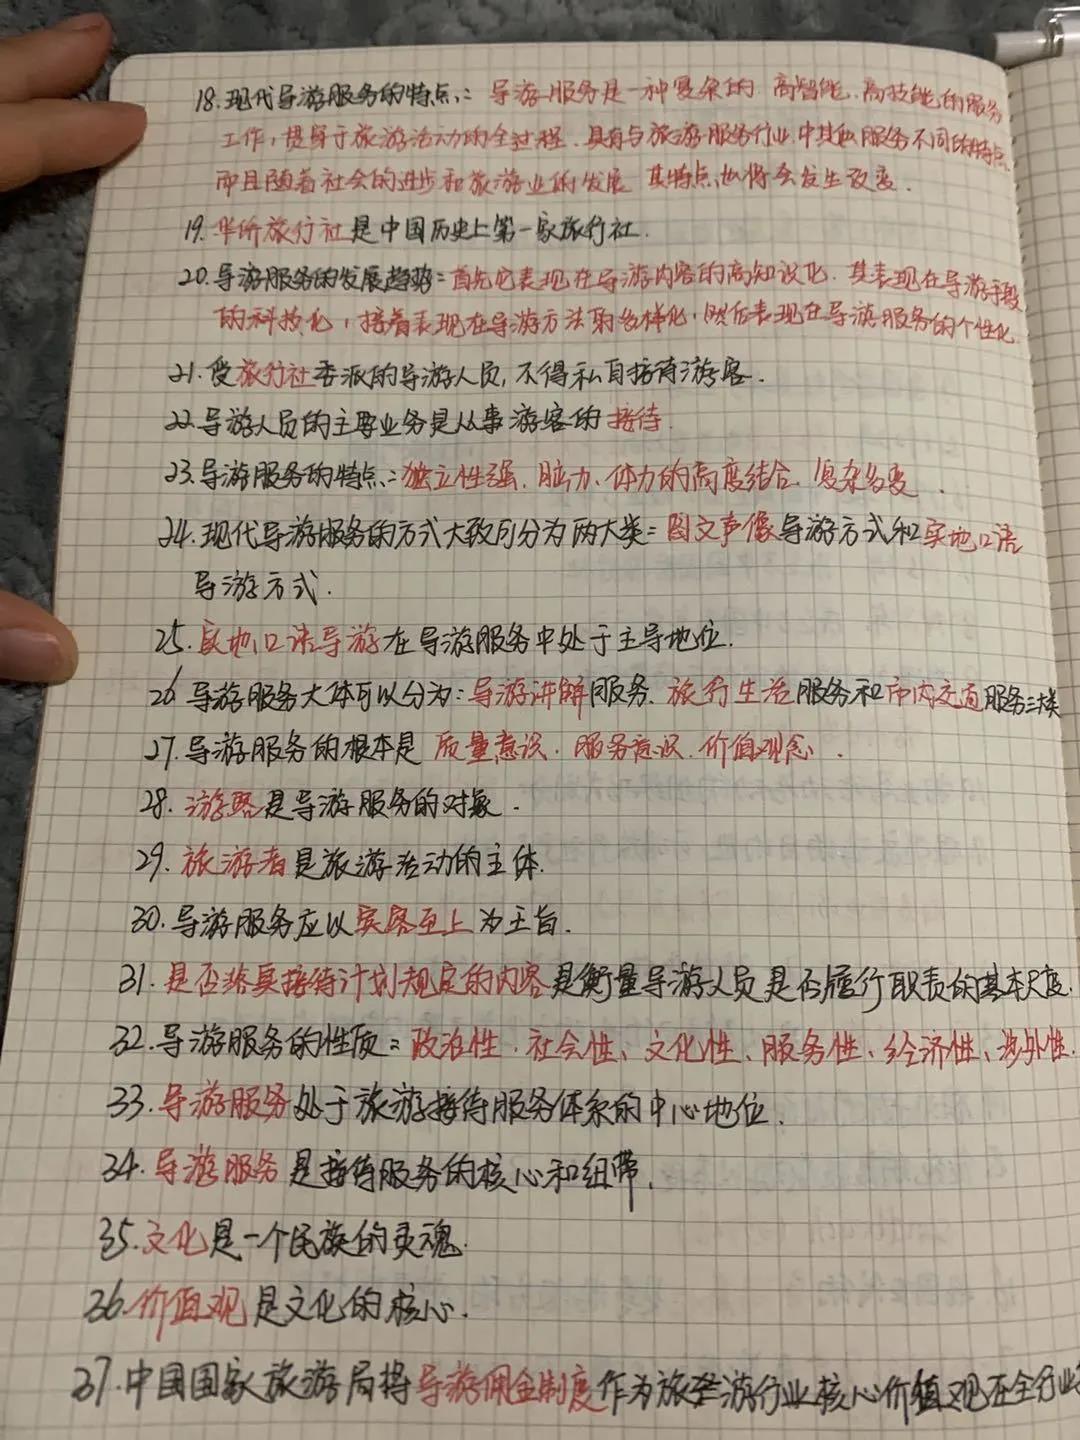 18.现代导游服务的特点:导游服务是一种复杂的、高智能、高技能的服务
工作,贯穿于旅游活动的全过程,具有与旅游服务行业中其他服务不同的特点,
而且随着社会的进步和旅游业的发展 其特点也将会发生改变.
19.华侨旅行社是中国历史上第一家旅行社.
20.导游服务的发展趋势:首先它表现在导游内容的高知识化.其表现在导游手段
的科技化,接着表现在导游方法的多样化,然后表现在导游服务的个性化.
21.受旅行社委派的导游人员,不得私自接待游客.
22.导游人员的主要业务是从事游客的接待.
23.导游服务的特点:独立性强、脑力、体力的高度结合、复杂多变.
24.现代导游服务的方式大致可分为两大类:图文声像导游方式和实地口语
导游方式.
25.实地口语导游在导游服务中处于主导地位.
26.导游服务大体可以分为:导游讲解服务、旅行生活服务和市内交通服务三大类
27.导游服务的根本是 质量意识、服务意识、价值观念.
28.游客是导游服务的对象.
29.旅游者是旅游活动的主体.
30.导游服务应以宾客至上为主旨.
31.是否落实接待计划规定的内容是衡量导游人员是否履行职责的基本尺度.
32.导游服务的性质:政治性、社会性、文化性、服务性、经济性、涉外性.
33.导游服务处于旅游接待服务体系的中心地位.
34.导游服务是接待服务的核心和纽带.
35.文化是一个民族的灵魂.
36.价值观是文化的核心.
37.中国国家旅游局将导游佣金制度作为旅游行业核心价值观在全行业